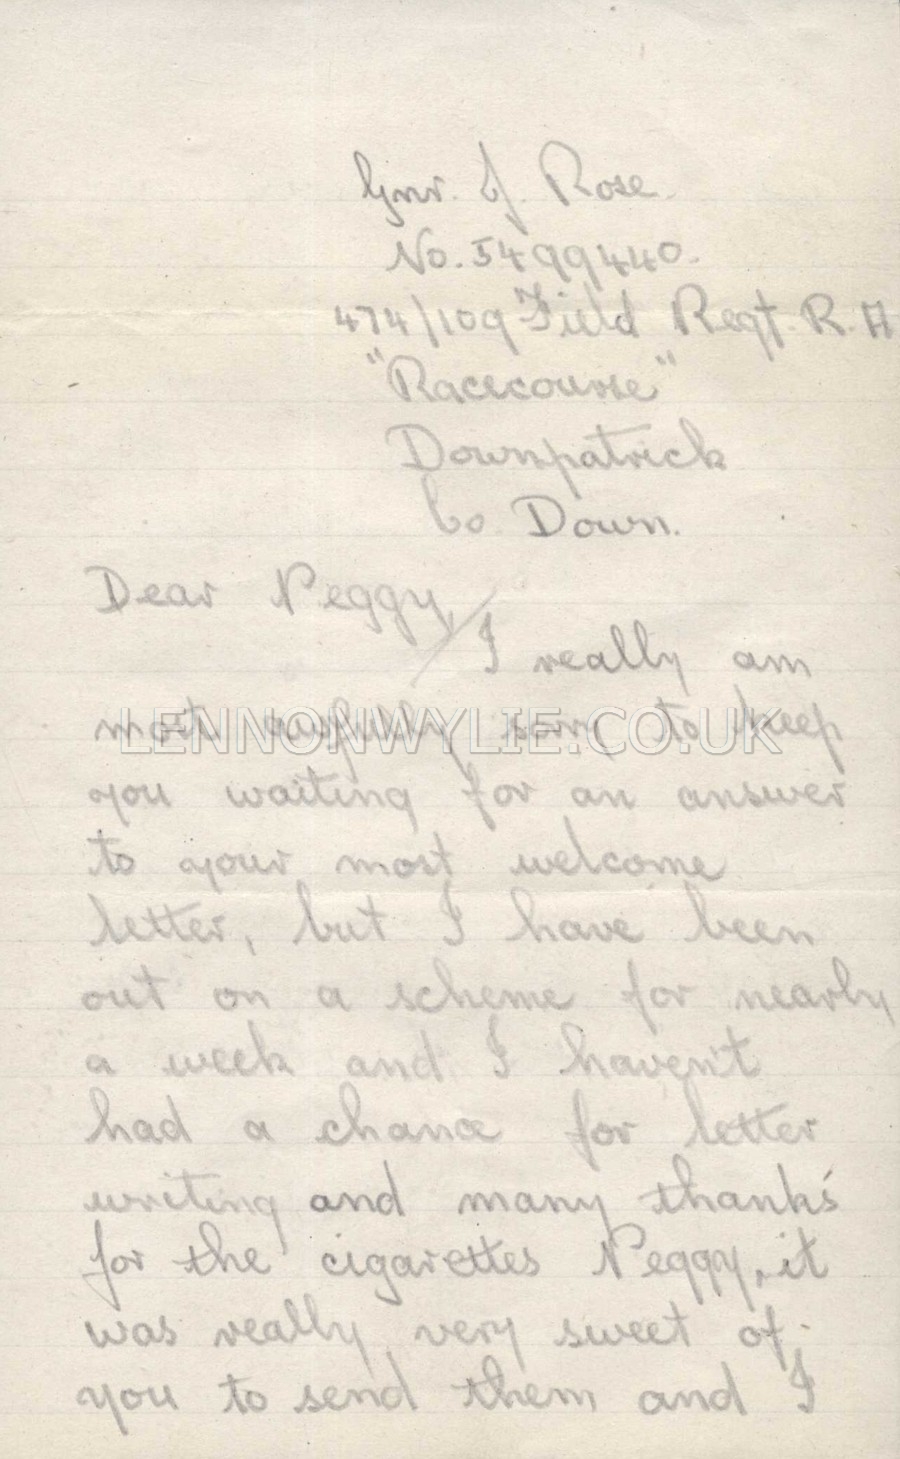 Gnr. J. Rose.
No. 5499440.
474/109 Field Regt. R. A
"Racecourse"
Downpatrick
Co Down.
Dear Peggy,
I really am
most awfully sorry to keep
LENNONWYLIE.CO.UK
you waiting for an answer
to your most welcome
letter, but I have been
out on a scheme for nearly
a week and I haven't
had a chance for letter
writing and many thank's
for the cigarettes Peggy, it
was really very sweet of
you to send them and I